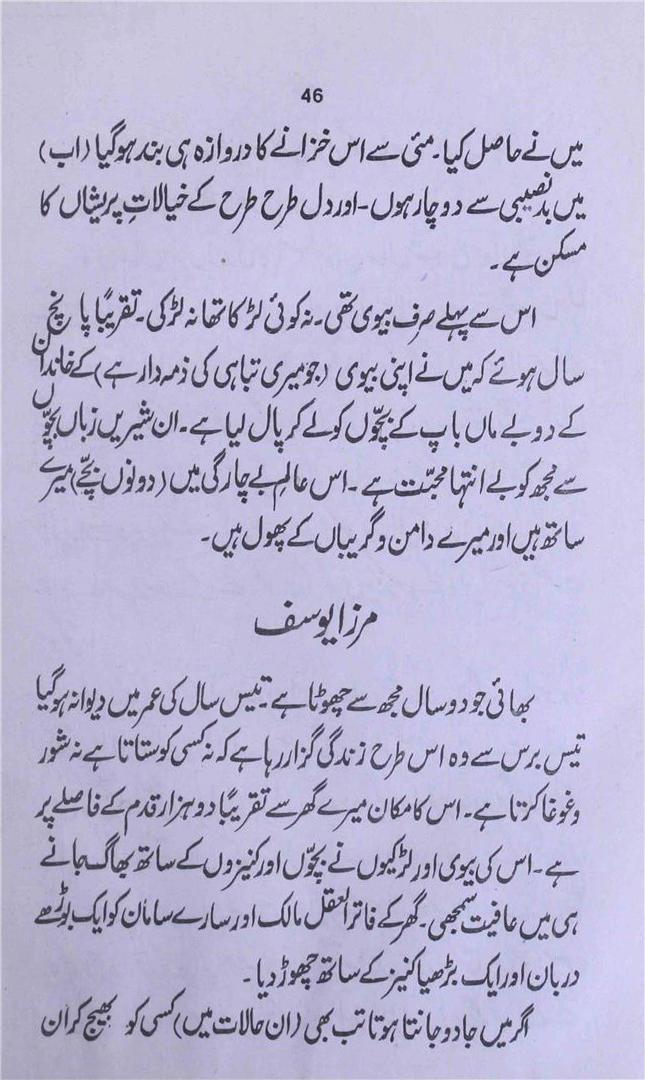 46
میں نے حاصل کیا۔ مئی سے اس خزانے کا دروازہ ہی بند ہوگیا (اب)
میں بدنصیبی سے دوچار ہوں۔ اور دل طرح طرح کے خیالاتِ پریشاں کا
مسکن ہے۔
اس سے پہلے صرف بیوی تھی۔ نہ کوئی لڑکا تھا نہ لڑکی۔ تقریباً پانچ
سال ہوئے کہ میں نے اپنی بیوی (جو میری تباہی کی ذمہ دار ہے) کے خاندان
کے دو بے ماں باپ کے بچّوں کو لے کر پال لیا ہے۔ ان شیریں زباں بچّوں
سے مجھ کو بے انتہا محبّت ہے۔ اس عالمِ بے چارگی میں (دونوں بچّے) میرے
ساتھ ہیں اور میرے دامن و گریباں کے پھول ہیں۔
مرزا یوسف
بھائی جو دو سال مجھ سے چھوٹا ہے۔ تیس سال کی عمر میں دیوانہ ہوگیا
تیس برس سے وہ اس طرح زندگی گزار رہا ہے کہ نہ کسی کو ستاتا ہے نہ شور
و غوغا کرتا ہے۔ اس کا مکان میرے گھر سے تقریباً دو ہزار قدم کے فاصلے پر
ہے۔ اس کی بیوی اور لڑکیوں نے بچّوں اور کنیزوں کے ساتھ بھاگ جانے
ہی میں عافیت سمجھی۔ گھر کے فاتر العقل مالک اور سارے سامان کو ایک بوڑھے
دربان اور ایک بڑھیا کنیز کے ساتھ چھوڑ دیا۔
اگر میں جادو جانتا ہوتا تب بھی (ان حالات میں) کسی کو بھیج کر ان